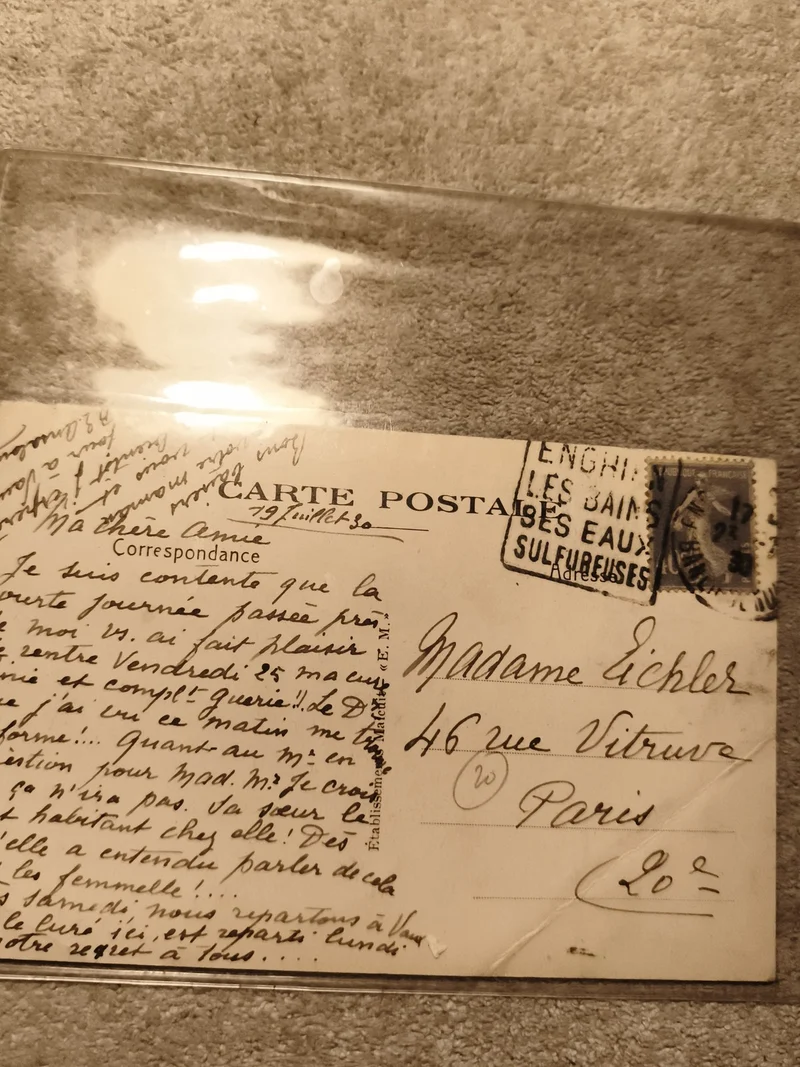 CARTE POSTALE
ENGHIEN
LES BAINS
SES EAUX
SULFUREUSES
19 Juillet 30
Ma chère amie
Correspondance
Adresse
Je suis contente que la
courte journée passée près
moi vs. ai fait plaisir
rentre Vendredi 25 ma cure
et complt guerie!! Le Dr
j'ai vu ce matin me
forme!... Quant au mr en
question pour Mad. Mr Je crois
ça n'ira pas. Sa sœur le
habitant chez elle! Dès
qu'elle a entendu parler de cela
les femmelle!....
samedi nous repartons à
le curé ici, est reparti lundi
notre regret à tous....
Bons
votre maman
vous et
bientôt j'espère
jour à
Établissements Malcuit «E. M.»
Madame Eichler
46 rue Vitruve
20
Paris
20e